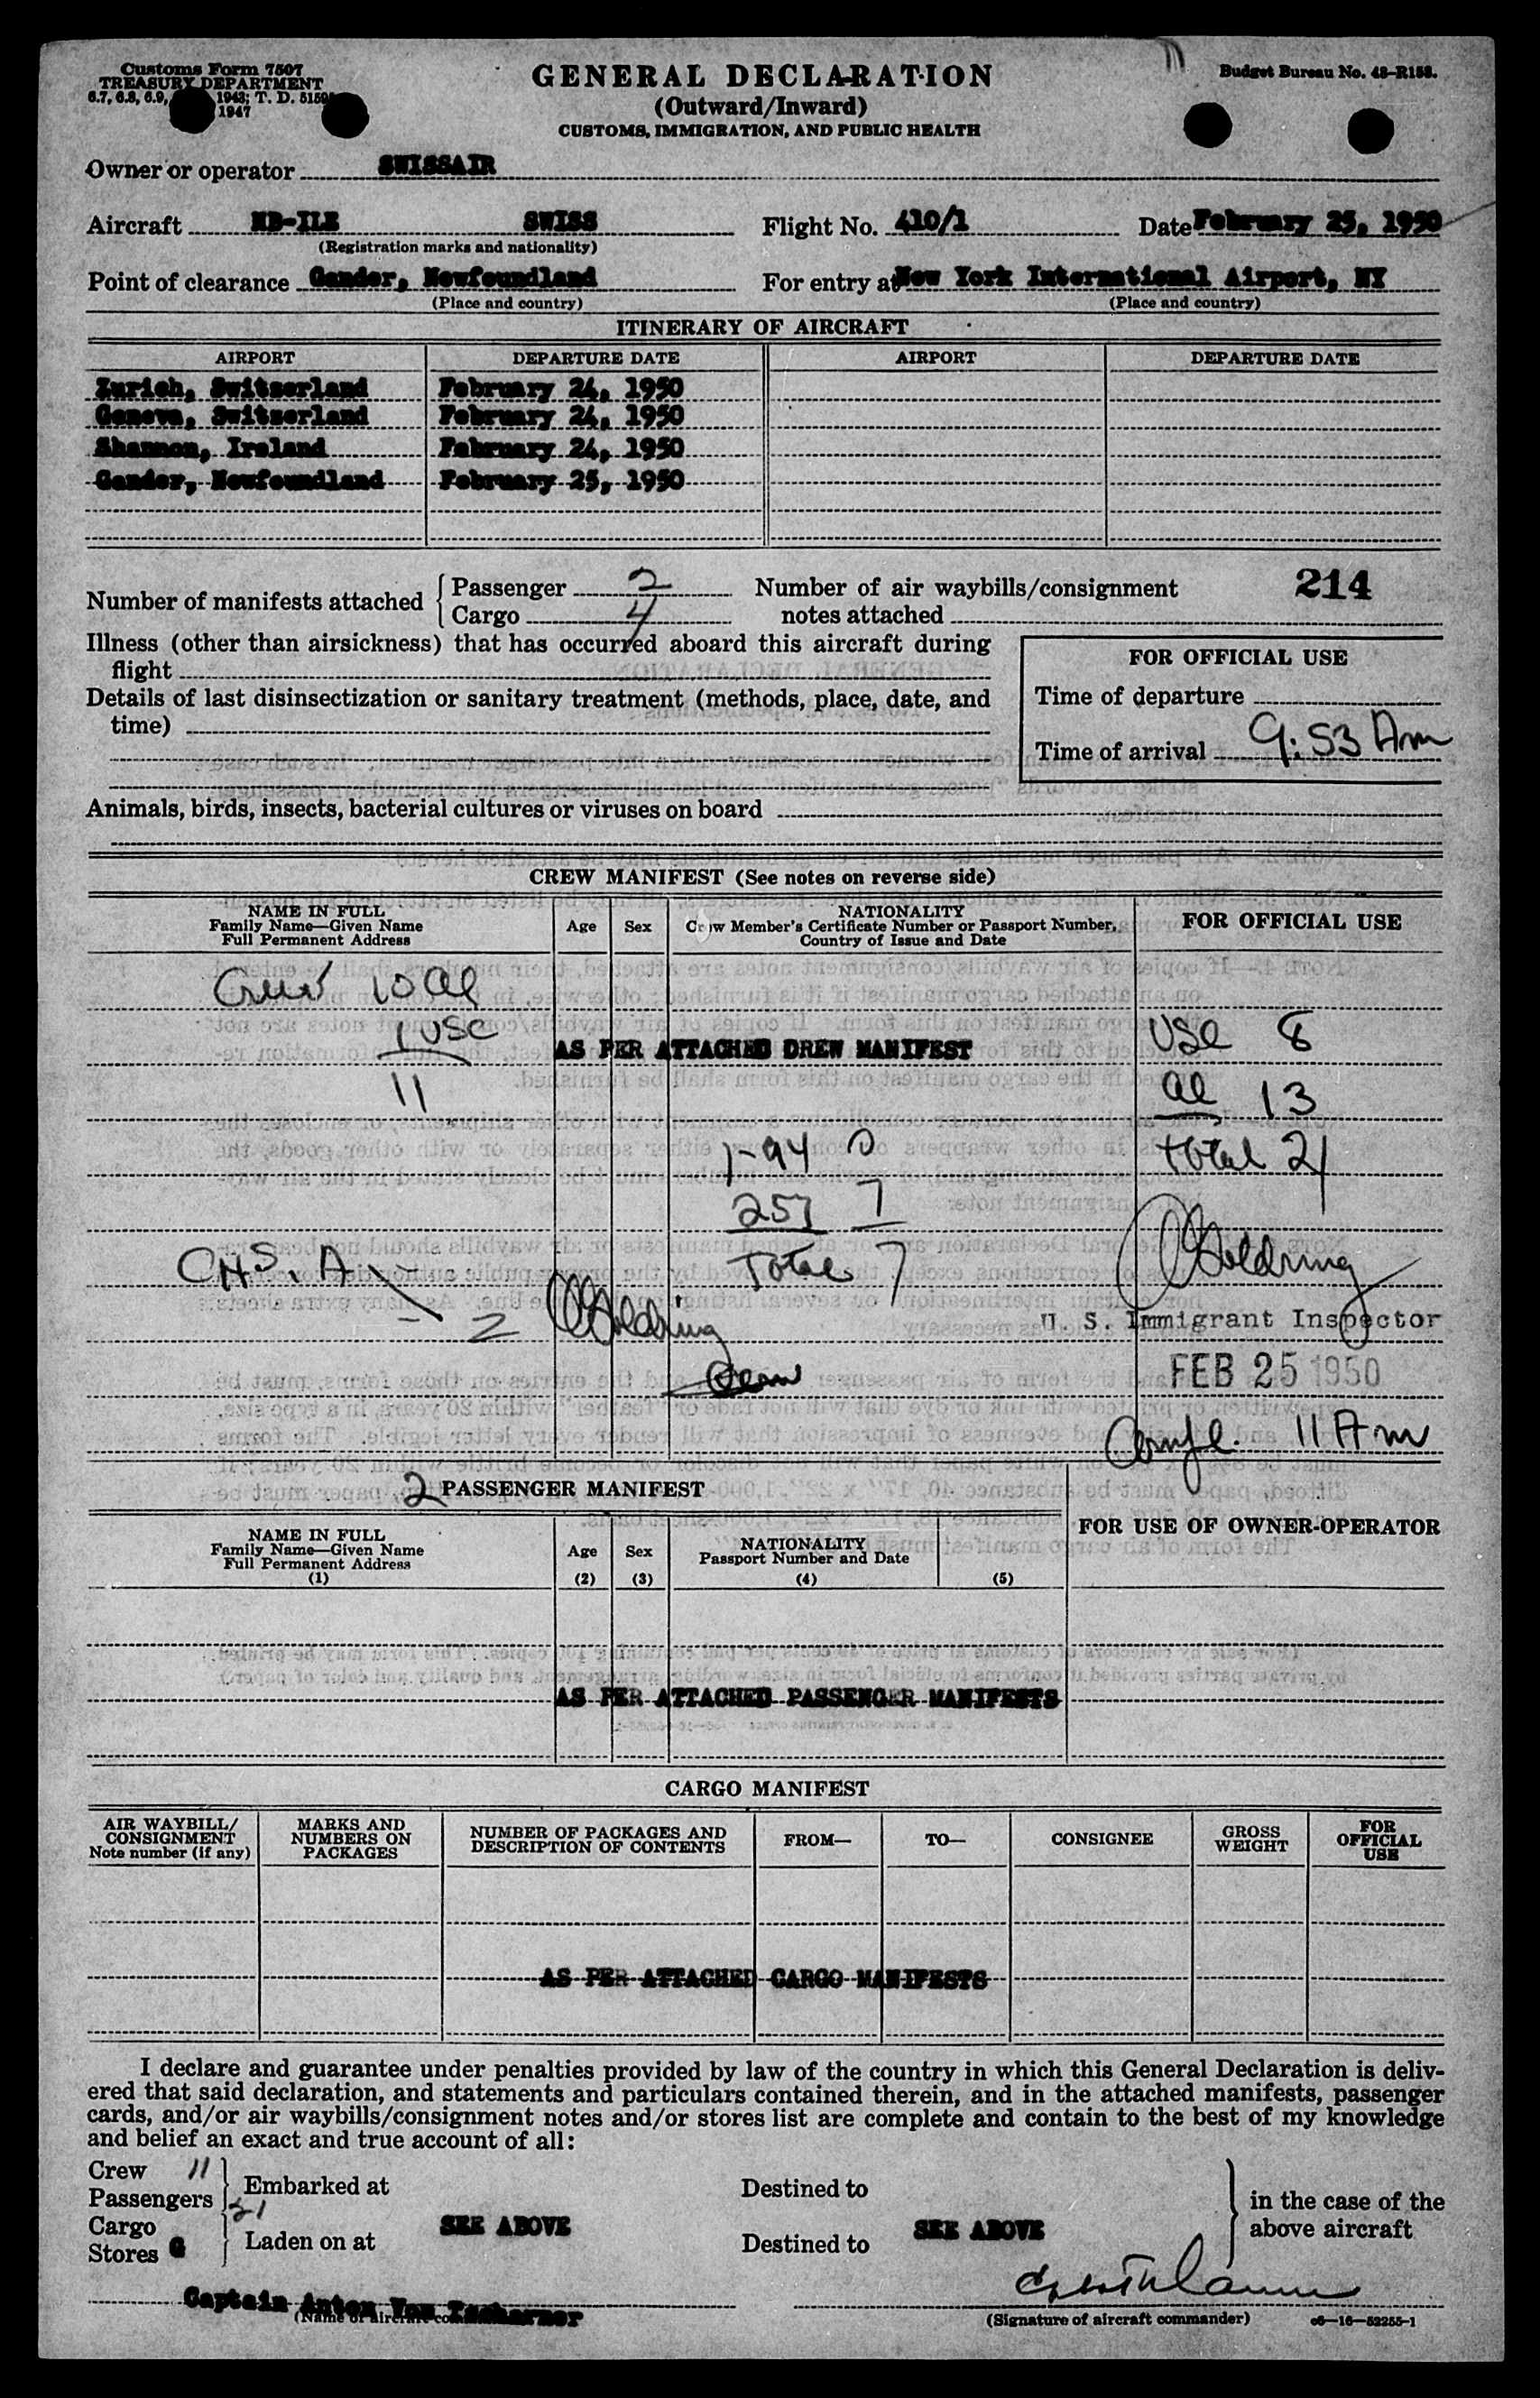 Customs Form 7507
TREASURY DEPARTMENT
6.7, 6.8, 6.9, 1943; T. D. 5159
1947
GENERAL DECLARATION
(Outward/Inward)
CUSTOMS, IMMIGRATION, AND PUBLIC HEALTH
Budget Bureau No. 48-R158.
Owner or operator SWISSAIR
Aircraft HB-ILE SWISS Flight No. 410/1 Date February 25, 1950
(Registration marks and nationality)
Point of clearance Gander, Newfoundland For entry at New York International Airport, NY
(Place and country) (Place and country)
ITINERARY OF AIRCRAFT
AIRPORT DEPARTURE DATE AIRPORT DEPARTURE DATE
Zurich, Switzerland February 24, 1950
Geneva, Switzerland February 24, 1950
Shannon, Ireland February 24, 1950
Gander, Newfoundland February 25, 1950
Number of manifests attached { Passenger 2 Number of air waybills/consignment 214
Cargo 4 notes attached
Illness (other than airsickness) that has occurred aboard this aircraft during
flight
Details of last disinsectization or sanitary treatment (methods, place, date, and
time)
FOR OFFICIAL USE
Time of departure
Time of arrival 9:53 Am
Animals, birds, insects, bacterial cultures or viruses on board
CREW MANIFEST (See notes on reverse side)
NAME IN FULL
Family Name—Given Name
Full Permanent Address
Age Sex
NATIONALITY
Crew Member's Certificate Number or Passport Number,
Country of Issue and Date
FOR OFFICIAL USE
Crew 10 al
1 USC
AS PER ATTACHED DREW MANIFEST
USC 8
11
al 13
I-94 0
total 21
257 7
Total 7
C.H.S. A
2
Goldring
Goldring
U. S. Immigrant Inspector
FEB 25 1950
Compl. 11 Am
2 PASSENGER MANIFEST
NAME IN FULL
Family Name—Given Name
Full Permanent Address
(1)
Age
(2)
Sex
(3)
NATIONALITY
Passport Number and Date
(4) (5)
FOR USE OF OWNER-OPERATOR
AS PER ATTACHED PASSENGER MANIFESTS
CARGO MANIFEST
AIR WAYBILL/
CONSIGNMENT
Note number (if any)
MARKS AND
NUMBERS ON
PACKAGES
NUMBER OF PACKAGES AND
DESCRIPTION OF CONTENTS
FROM—
TO—
CONSIGNEE
GROSS
WEIGHT
FOR
OFFICIAL
USE
AS PER ATTACHED CARGO MANIFESTS
I declare and guarantee under penalties provided by law of the country in which this General Declaration is deliv-
ered that said declaration, and statements and particulars contained therein, and in the attached manifests, passenger
cards, and/or air waybills/consignment notes and/or stores list are complete and contain to the best of my knowledge
and belief an exact and true account of all:
Crew 11
Passengers 21
Cargo
Stores
Embarked at
Laden on at
SEE ABOVE
Destined to
Destined to
SEE ABOVE
in the case of the
above aircraft
Captain Anton Von Tscharner
(Name of aircraft commander)
(Signature of aircraft commander)
c6—16—52255-1